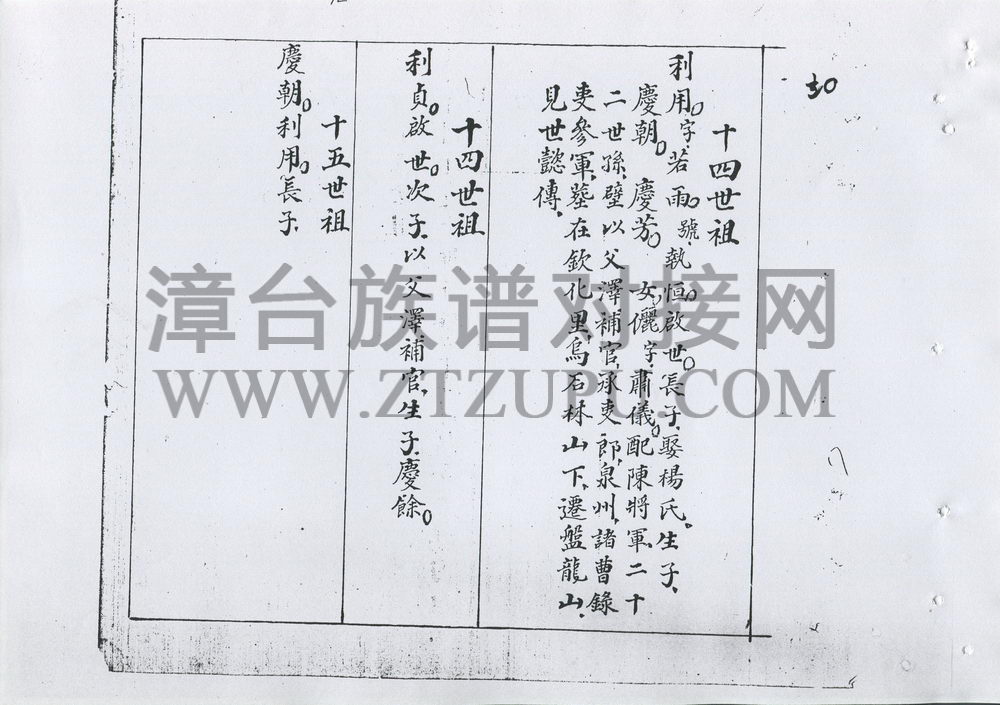 30
十四世祖
利用。字。若雨。號執恒。啟世。長子。娶楊氏。生子、
慶朝。慶芳。女儷字、肅儀。配陳將軍、二十
二世孫、壁以父澤補官、承吏郎、泉州、諸曹錄
吏參軍、墓在欽化里烏石林山下、遷盤龍山、
見世懿傳、
十四世祖
利貞。啟世。次子、以父澤補官、生子、慶餘。
十五世祖
慶朝。利用。長子、
漳台族谱对接网
WWW.ZTZUPU.COM